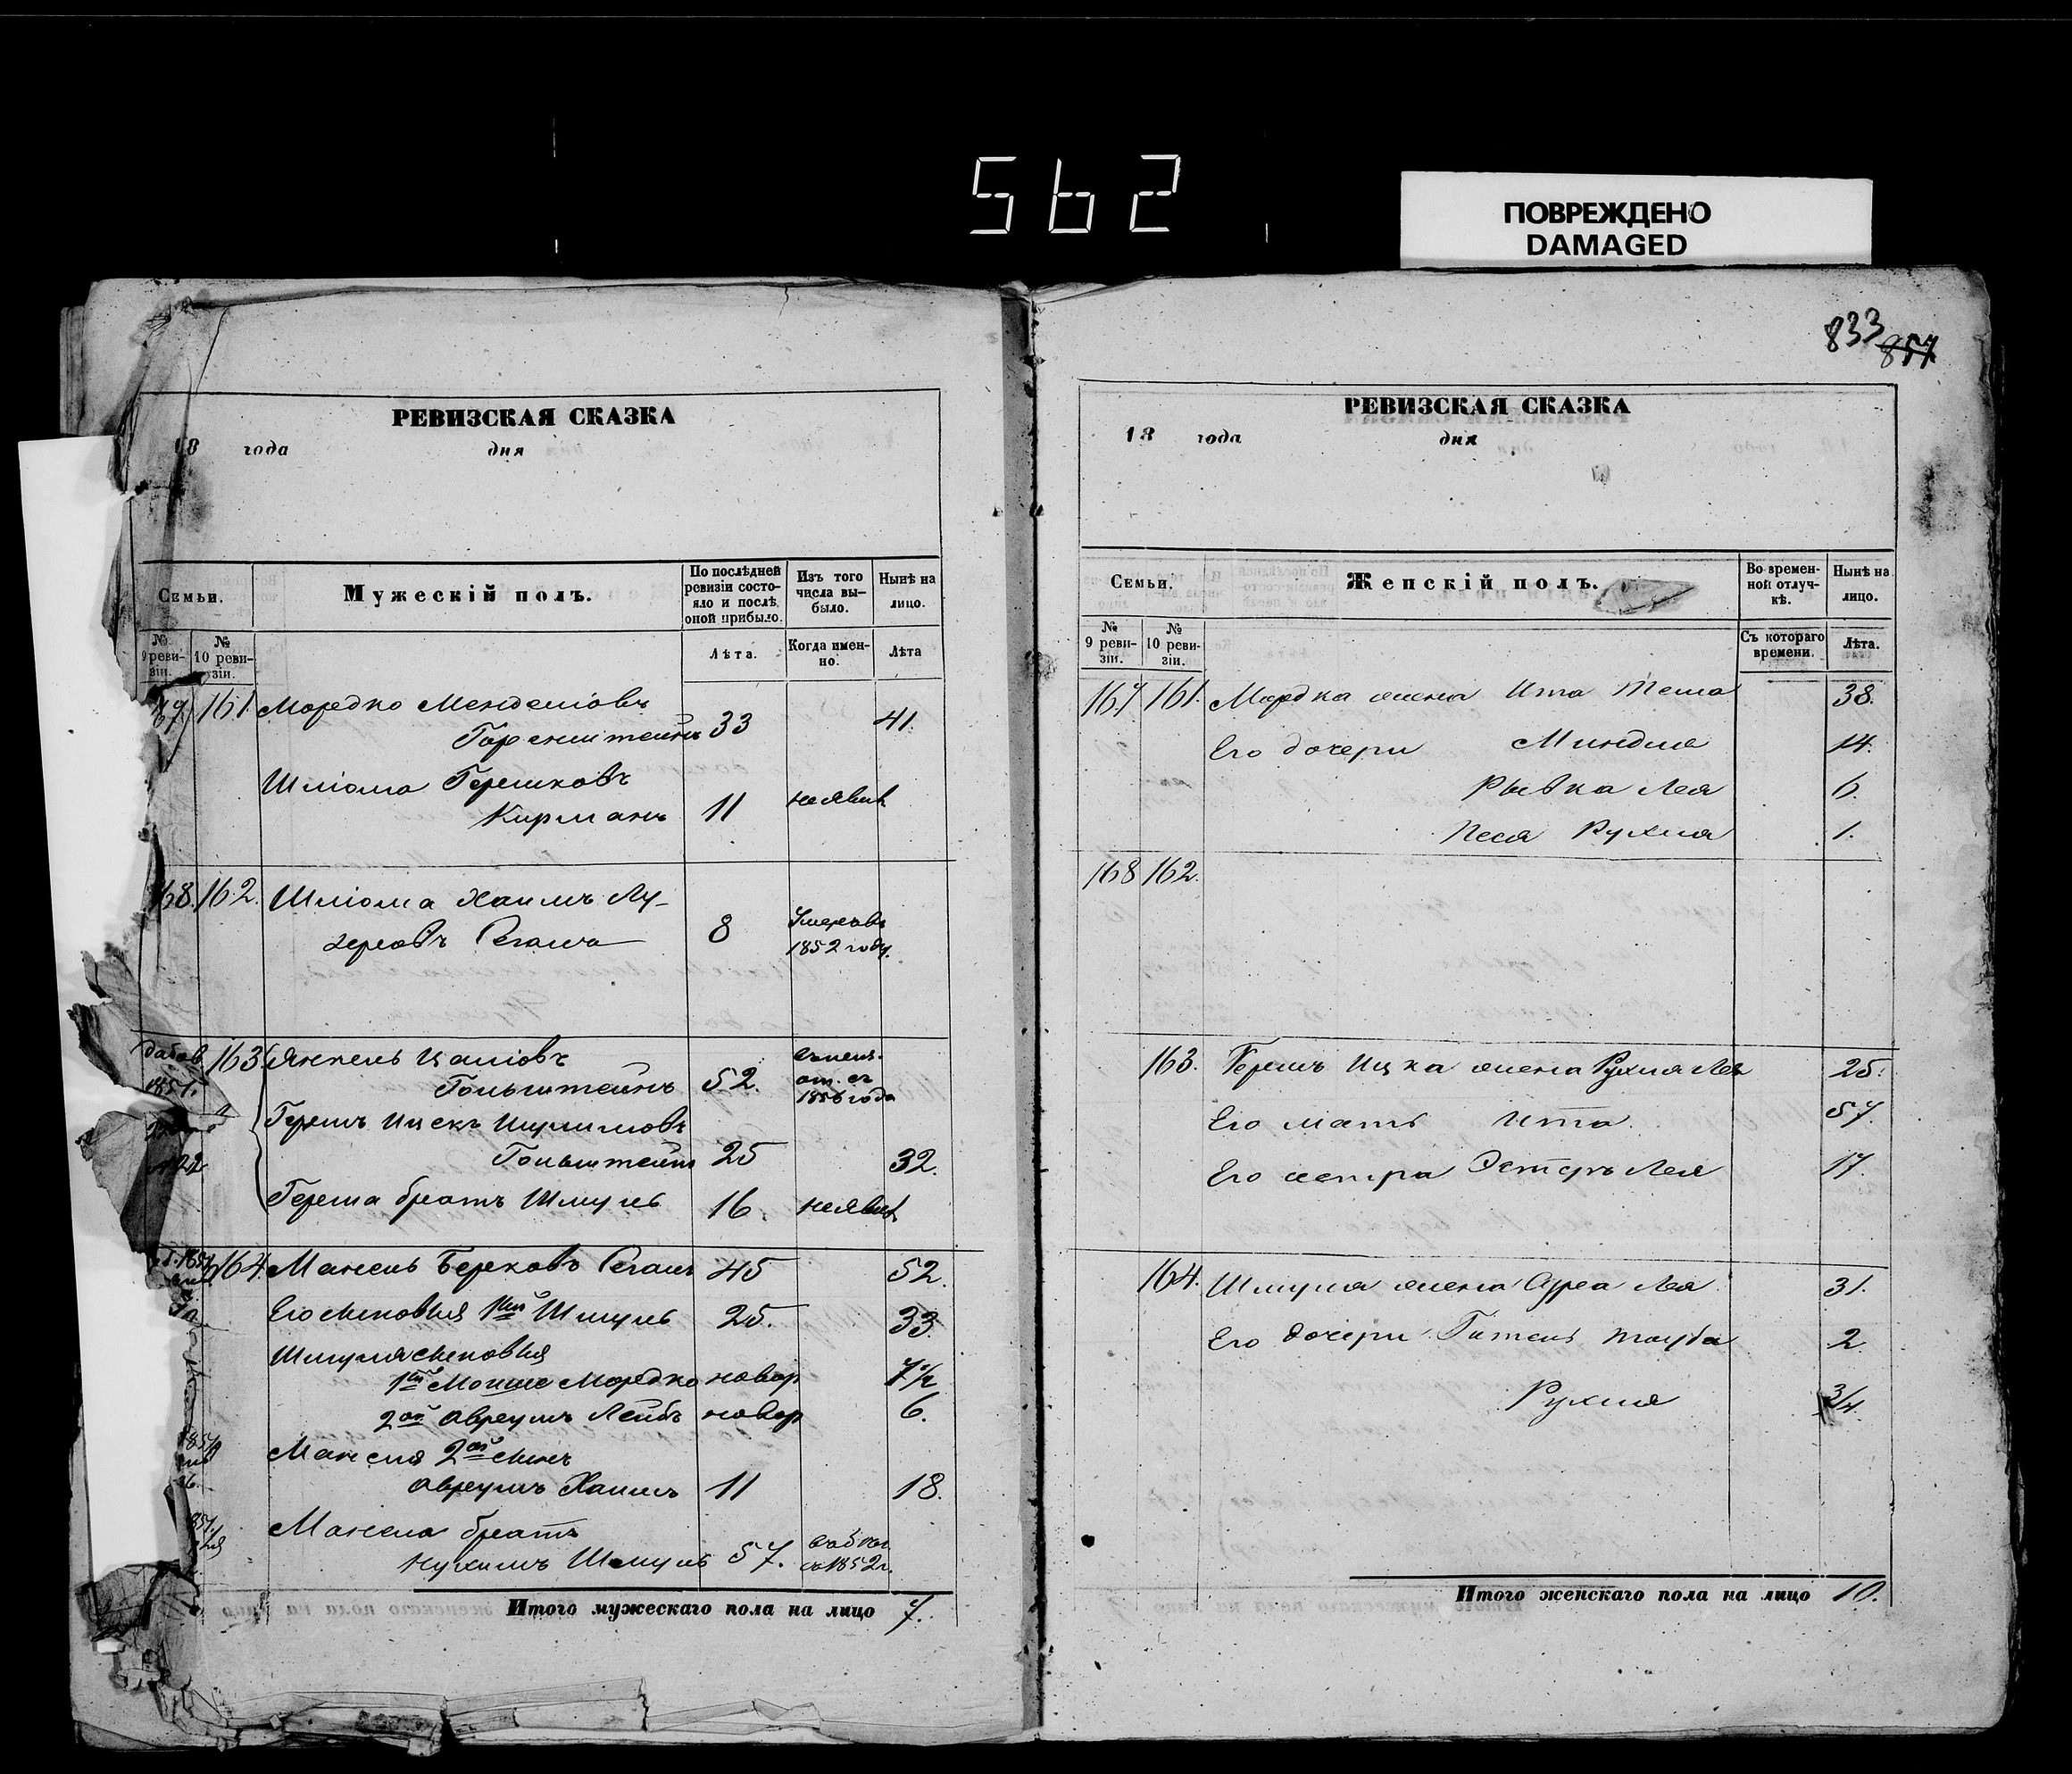 562
ПОВРЕЖДЕНО
DAMAGED
РЕВИЗСКАЯ СКАЗКА
18 года дня
Семьи.
Мужескій полъ.
По послѣдней ревизіи состояло и послѣ оной прибыло.
Изъ того числа выбыло.
Нынѣ на лицо.
№ 9 ревизіи.
№ 10 ревизіи.
Лѣта.
Когда именно.
Лѣта
161 Мордко Менделіовъ
33 41.
Шліома Гершковъ
Кирманъ 11 неявив
168. 162. Шліома Хаимъ Лу-
зеровъ 8 Умеръ въ
1852 году.
163. Янкель
Гольштейнъ 52.
1856 года
1851.
Гершъ Ицекъ
Гольштейнъ 25 32.
Герша братъ Шмуль 16. неявив
164. Манель Берковъ 45 52.
Его сыновья 1ый Шмуль 25. 33.
Шмуля сыновья
1ый Мошко Мордко новор 7 1/2
2ой Авреумъ Лейбъ новор 6.
2ой сынъ
Авреумъ Хаимъ 11 18.
братъ
Нухимъ Шмуль 57. съ 1852 г.
Итого мужескаго пола на лицо 7.
833
857
РЕВИЗСКАЯ СКАЗКА
18 года дня
Семьи.
Женскій полъ.
Во временной отлучкѣ.
Нынѣ на лицо.
№ 9 ревизіи.
№ 10 ревизіи.
Съ котораго времени.
Лѣта.
167 161. Мордка жена Ита 38.
Его дочери Миндля 14.
Рывка Лея 6.
Песя Рухля 1.
168 162.
163. Гершъ Ицка жена Рухля Лея 25.
Его мать Ита. 57.
Его сестра Эстеръ Лея 17.
164. Шмуля жена Сура Лея 31.
Его дочери Гитель Тауба 2.
Рухля 3/4.
Итого женскаго пола на лицо 10.